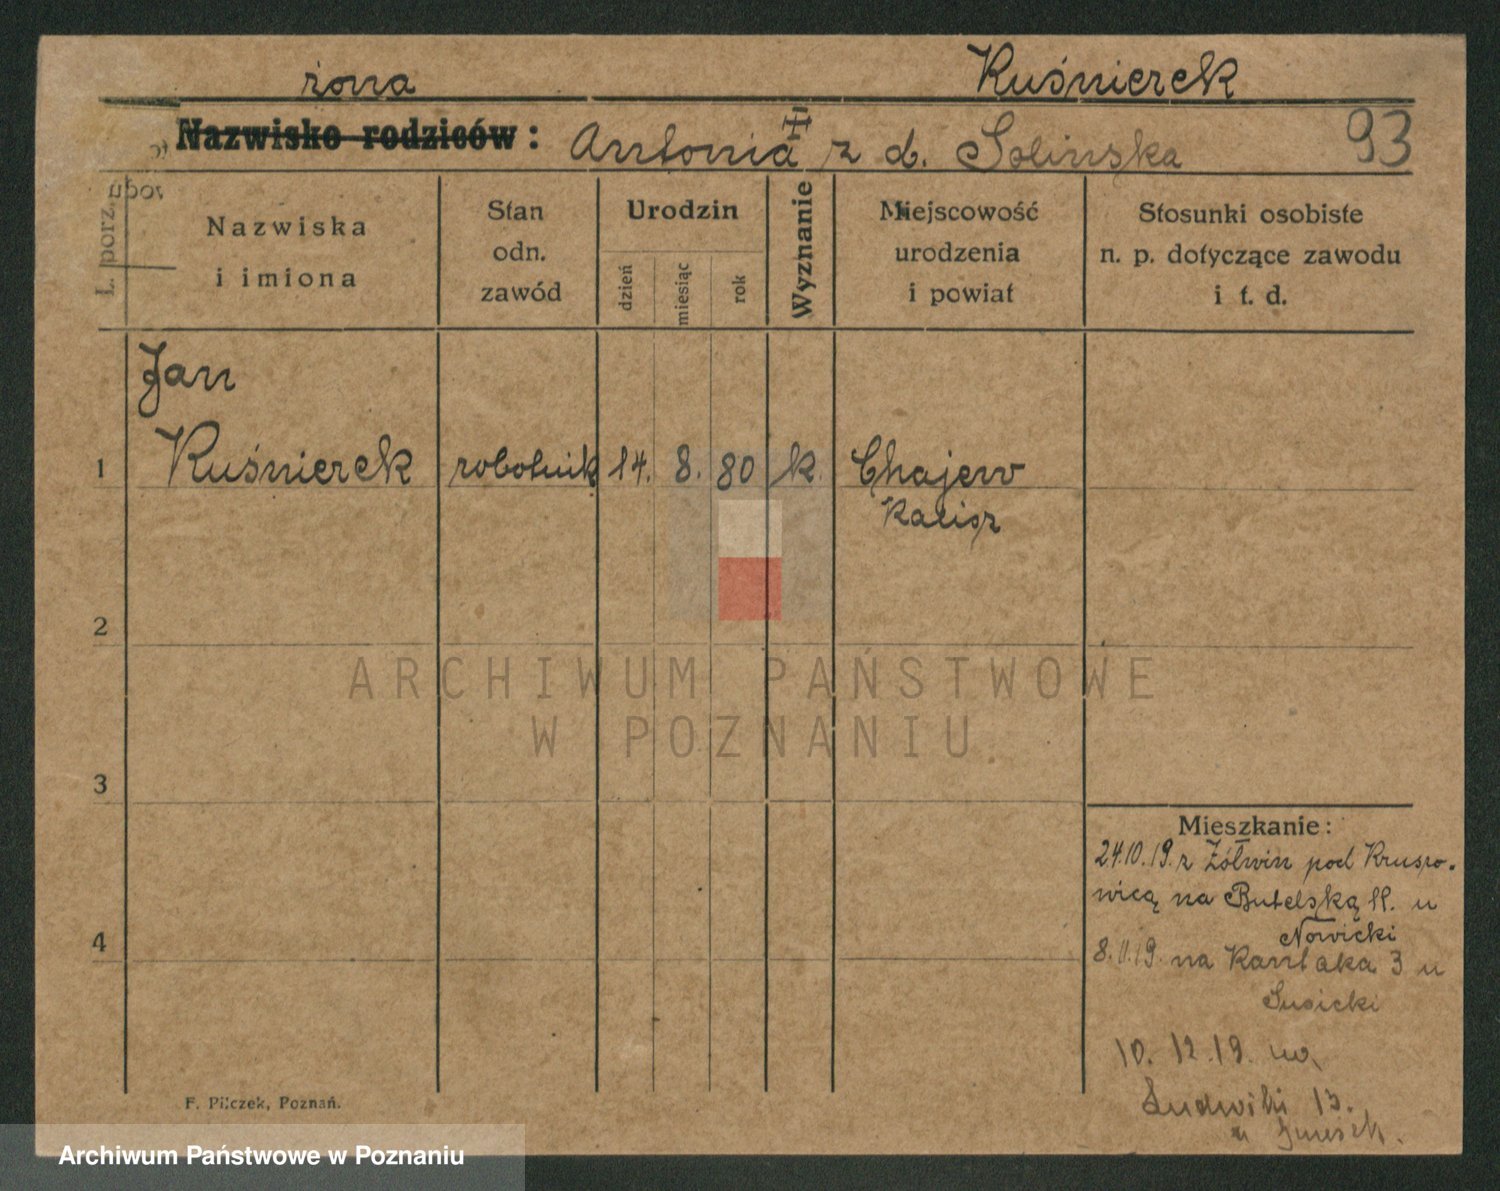 żona Kuśnierek
Nazwisko rodziców: Antonia z d. Solińska 93
L. porz.
Nazwiska
i imiona
Stan
odn.
zawód
Urodzin
dzień
miesiąc
rok
Wyznanie
Miejscowość
urodzenia
i powiat
Stosunki osobiste
n. p. dotyczące zawodu
i t. d.
Jan
1 Kuśnierek robotnik 14. 8. 80 k. Chajew
Kalisz
2
3
4
Mieszkanie:
24.10.19. z Żółwin pod Kruszo-
wicą na Butelską 11. u
Nowicki
8.11.19. na Kantaka 3 u
Susicki
10. 12.19. na
Ludwiki 13.
u
F. Pilczek, Poznań.
ARCHIWUM PAŃSTWOWE
W POZNANIU
Archiwum Państwowe w Poznaniu